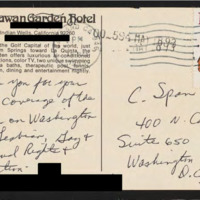 uwan Garden Hotel
Indian Wells, California 92260
the Golf Capital of the world, just
m Springs toward La Quinta, the
ten offers luxurious air-conditioned
tions, color TV, two unique swimming
a baths, therapeutic pool, tennis,
n, dining and entertainment nightly.
PM
MAY
1993
you for your
coverage of the
on Washington
Lesbian, Gay &
ual Rights &
tion"
C. Span
400 N. C
Suite 650
Washington
D.C